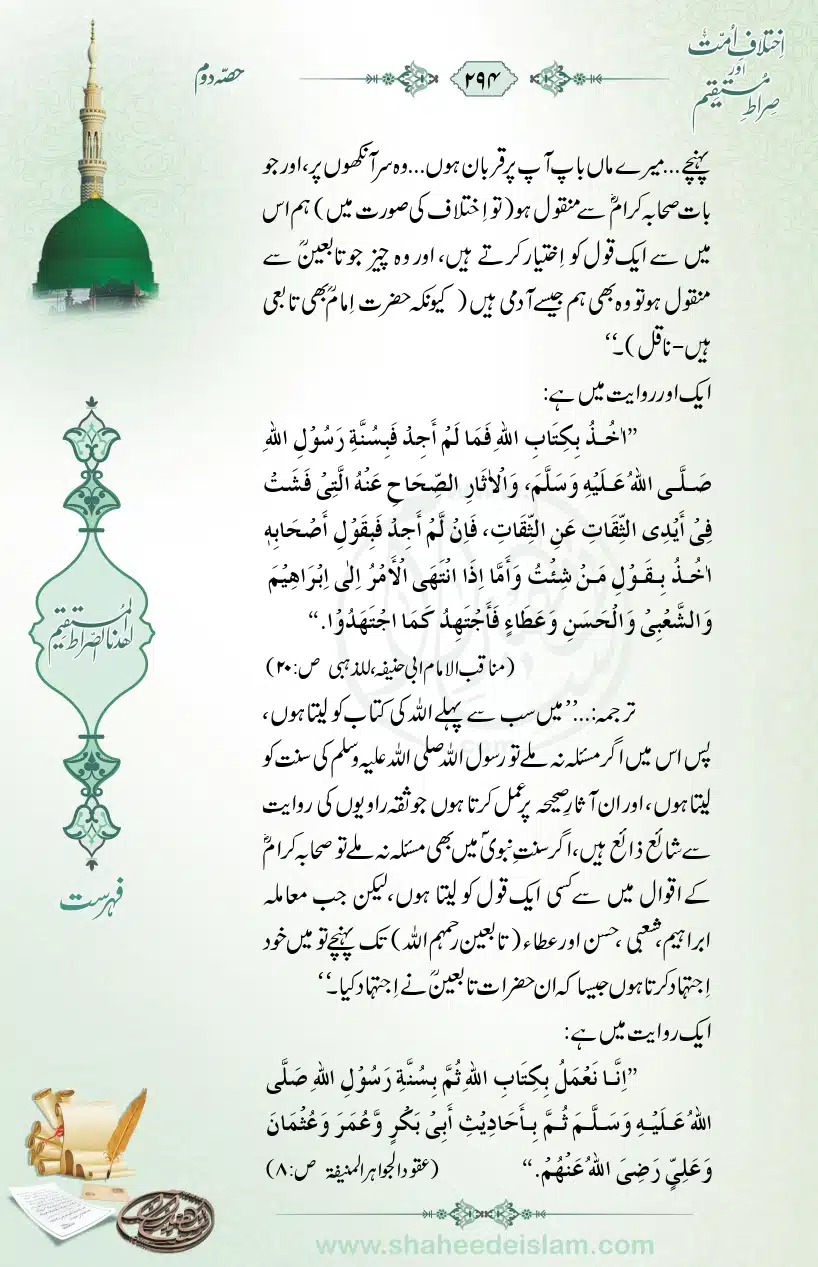 اِختلافِ اُمّت
اور
صِراطِ مُستقیم
۲۹۴
حصّہ دوم
پہنچے...میرے ماں باپ آپ پر قربان ہوں...وہ سر آنکھوں پر، اور جو
بات صحابہ کرامؓ سے منقول ہو (تو اِختلاف کی صورت میں) ہم اس
میں سے ایک قول کو اِختیار کرتے ہیں، اور وہ چیز جو تابعینؒ سے
منقول ہو تو وہ بھی ہم جیسے آدمی ہیں ( کیونکہ حضرت اِمامؒ بھی تابعی
ہیں-ناقل)۔‘‘
ایک اور روایت میں ہے:
’’اٰخُذُ بِكِتَابِ اللهِ فَمَا لَمْ أَجِدْ فَبِسُنَّةِ رَسُوْلِ اللهِ
صَلَّى اللهُ عَلَيْهِ وَسَلَّمَ، وَالْاٰثَارِ الصِّحَاحِ عَنْهُ الَّتِىْ فَشَتْ
فِىْ أَيْدِى الثِّقَاتِ عَنِ الثِّقَاتِ، فَاِنْ لَّمْ أَجِدْ فَبِقَوْلِ أَصْحَابِهٖ
اٰخُذُ بِقَوْلِ مَنْ شِئْتُ وَأَمَّا اِذَا انْتَهَى الْأَمْرُ اِلٰى اِبْرَاهِيْمَ
وَالشَّعْبِىْ وَالْحَسَنِ وَعَطَاءٍ فَأَجْتَهِدُ كَمَا اجْتَهَدُوْا.‘‘
(مناقب الامام ابی حنیفہ، للذہبی ص:۲۰)
ترجمہ:...’’میں سب سے پہلے اللہ کی کتاب کو لیتا ہوں،
پس اس میں اگر مسئلہ نہ ملے تو رسول اللہ صلی اللہ علیہ وسلم کی سنت کو
لیتا ہوں، اور ان آثارِ صحیحہ پر عمل کرتا ہوں جو ثقہ راویوں کی روایت
سے شائع ذائع ہیں، اگر سنتِ نبویؐ میں بھی مسئلہ نہ ملے تو صحابہ کرامؓ
کے اقوال میں سے کسی ایک قول کو لیتا ہوں، لیکن جب معاملہ
ابراہیم، شعبی، حسن اور عطاء (تابعین رحمہم اللہ) تک پہنچے تو میں خود
اِجتہاد کرتا ہوں جیسا کہ ان حضرات تابعینؒ نے اِجتہاد کیا۔‘‘
ایک روایت میں ہے:
’’اِنَّا نَعْمَلُ بِكِتَابِ اللهِ ثُمَّ بِسُنَّةِ رَسُوْلِ اللهِ صَلَّى
اللهُ عَلَيْهِ وَسَلَّمَ ثُمَّ بِأَحَادِيْثِ أَبِىْ بَكْرٍ وَّعُمَرَ وَعُثْمَانَ
وَعَلِيٍّ رَضِىَ اللهُ عَنْهُمْ.‘‘ (عقود الجواہر المنیفۃ ص:۸)
اهدنا الصراط المستقيم
فہرست
www.shaheedeislam.com